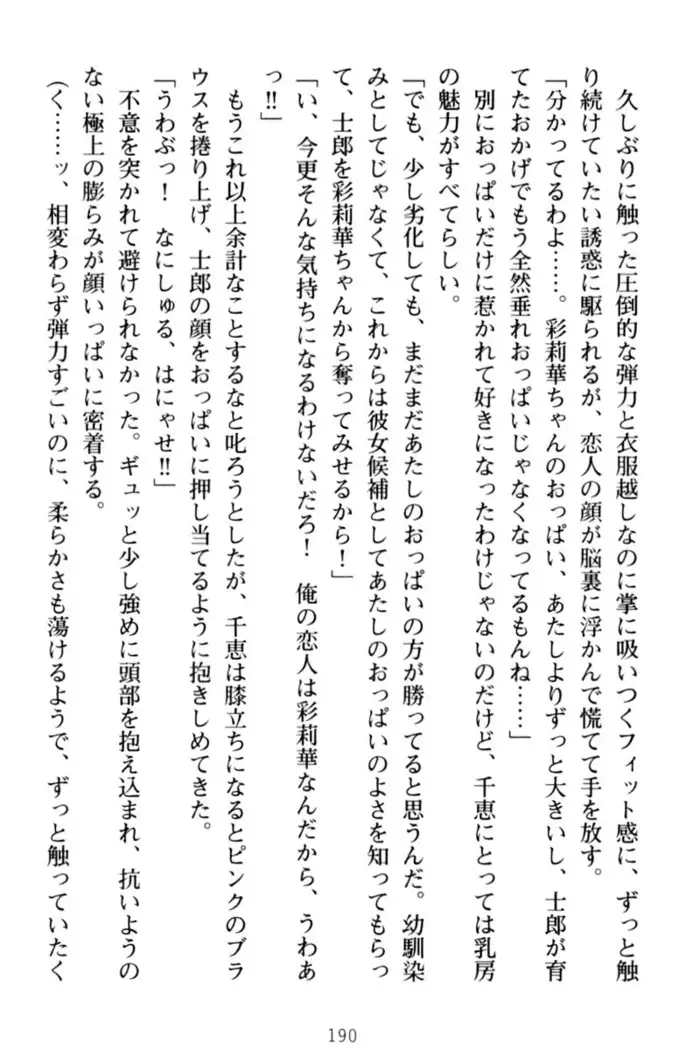 久しぶりに触った圧倒的な弾力と衣服越しなのに掌に吸いつくフィット感に、ずっと触
り続けていたい誘惑に駆られるが、恋人の顔が脳裏に浮かんで慌てて手を放す。
「分かってるわよ……。彩莉華ちゃんのおっぱい、あたしよりずっと大きいし、士郎が育
てたおかげでもう全然垂れおっぱいじゃなくなってるもんね……」
別におっぱいだけに惹かれて好きになったわけじゃないのだけど、千恵にとっては乳房
の魅力がすべてらしい。
「でも、少し劣化しても、まだまだあたしのおっぱいの方が勝ってると思うんだ。幼馴染
みとしてじゃなくて、これからは彼女候補としてあたしのおっぱいのよさを知ってもらっ
て、士郎を彩莉華ちゃんから奪ってみせるから！」
「い、今更そんな気持ちになるわけないだろ！　俺の恋人は彩莉華なんだから、うわあ
っ!!」
もうこれ以上余計なことするなと叱ろうとしたが、千恵は膝立ちになるとピンクのブラ
ウスを捲り上げ、士郎の顔をおっぱいに押し当てるように抱きしめてきた。
「うわぶっ！　なにしゅる、はにゃせ!!」
不意を突かれて避けられなかった。ギュッと少し強めに頭部を抱え込まれ、抗いようの
ない極上の膨らみが顔いっぱいに密着する。
（く……ッ、相変わらず弾力すごいのに、柔らかさも蕩けるようで、ずっと触っていたく
190